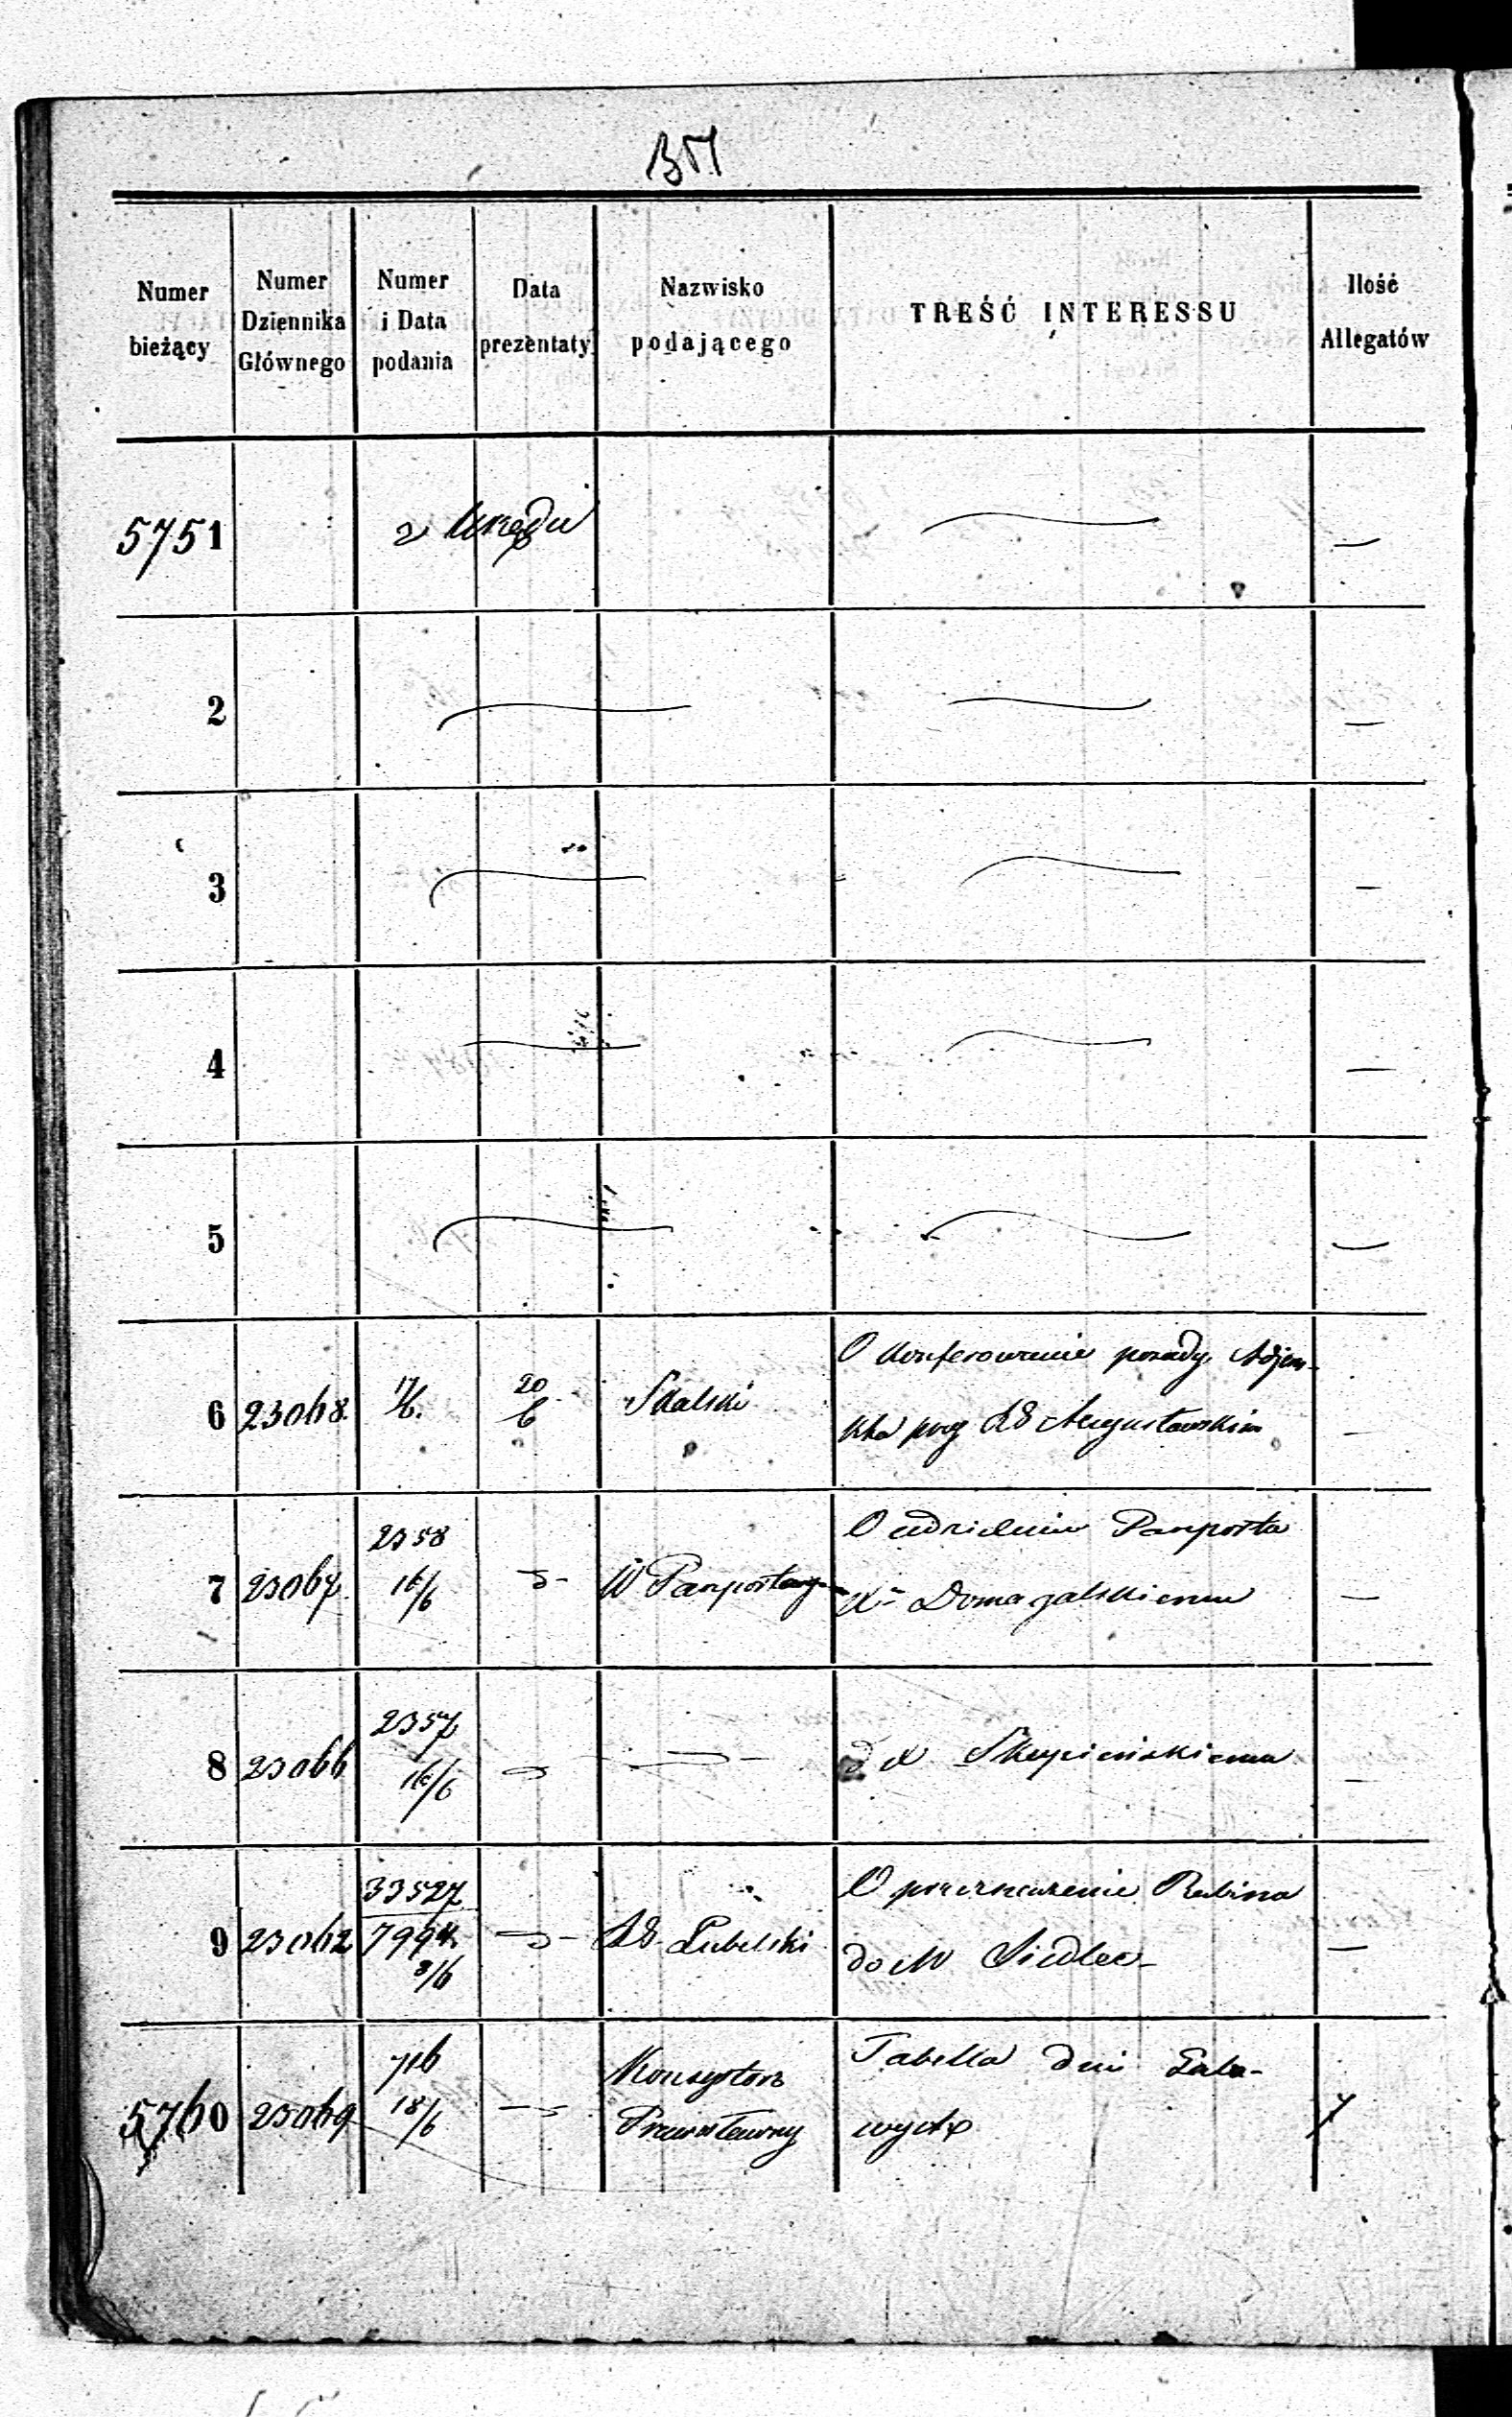 Numer bieżący
Numer Dziennika Głównego
Numer i Data podania
Data prezentaty
Nazwisko podającego
TREŚĆ INTERESSU
Ilość Allegatów
5751 z Urzędu —
2 —
3 —
4 —
5 —
6 23068 17/6. 20/6 Skalski O konferowanie posady Adjun-
kta przy RG Augustowskim —
7 23067 2358 16/6 d- W Pasportowy O udzielenie Pasporta
Xu Domagalskiemu —
8 23066 2357 16/6 d d X Skupieńskiemu —
9 23062 33527/7994 8/6 d- RG Lubelski O przeznaczenie Rubina
do M Siedlec —
5760 23069 716 18/6 Konsystorz Prawosławny Tabella dni Galo-
wych 1